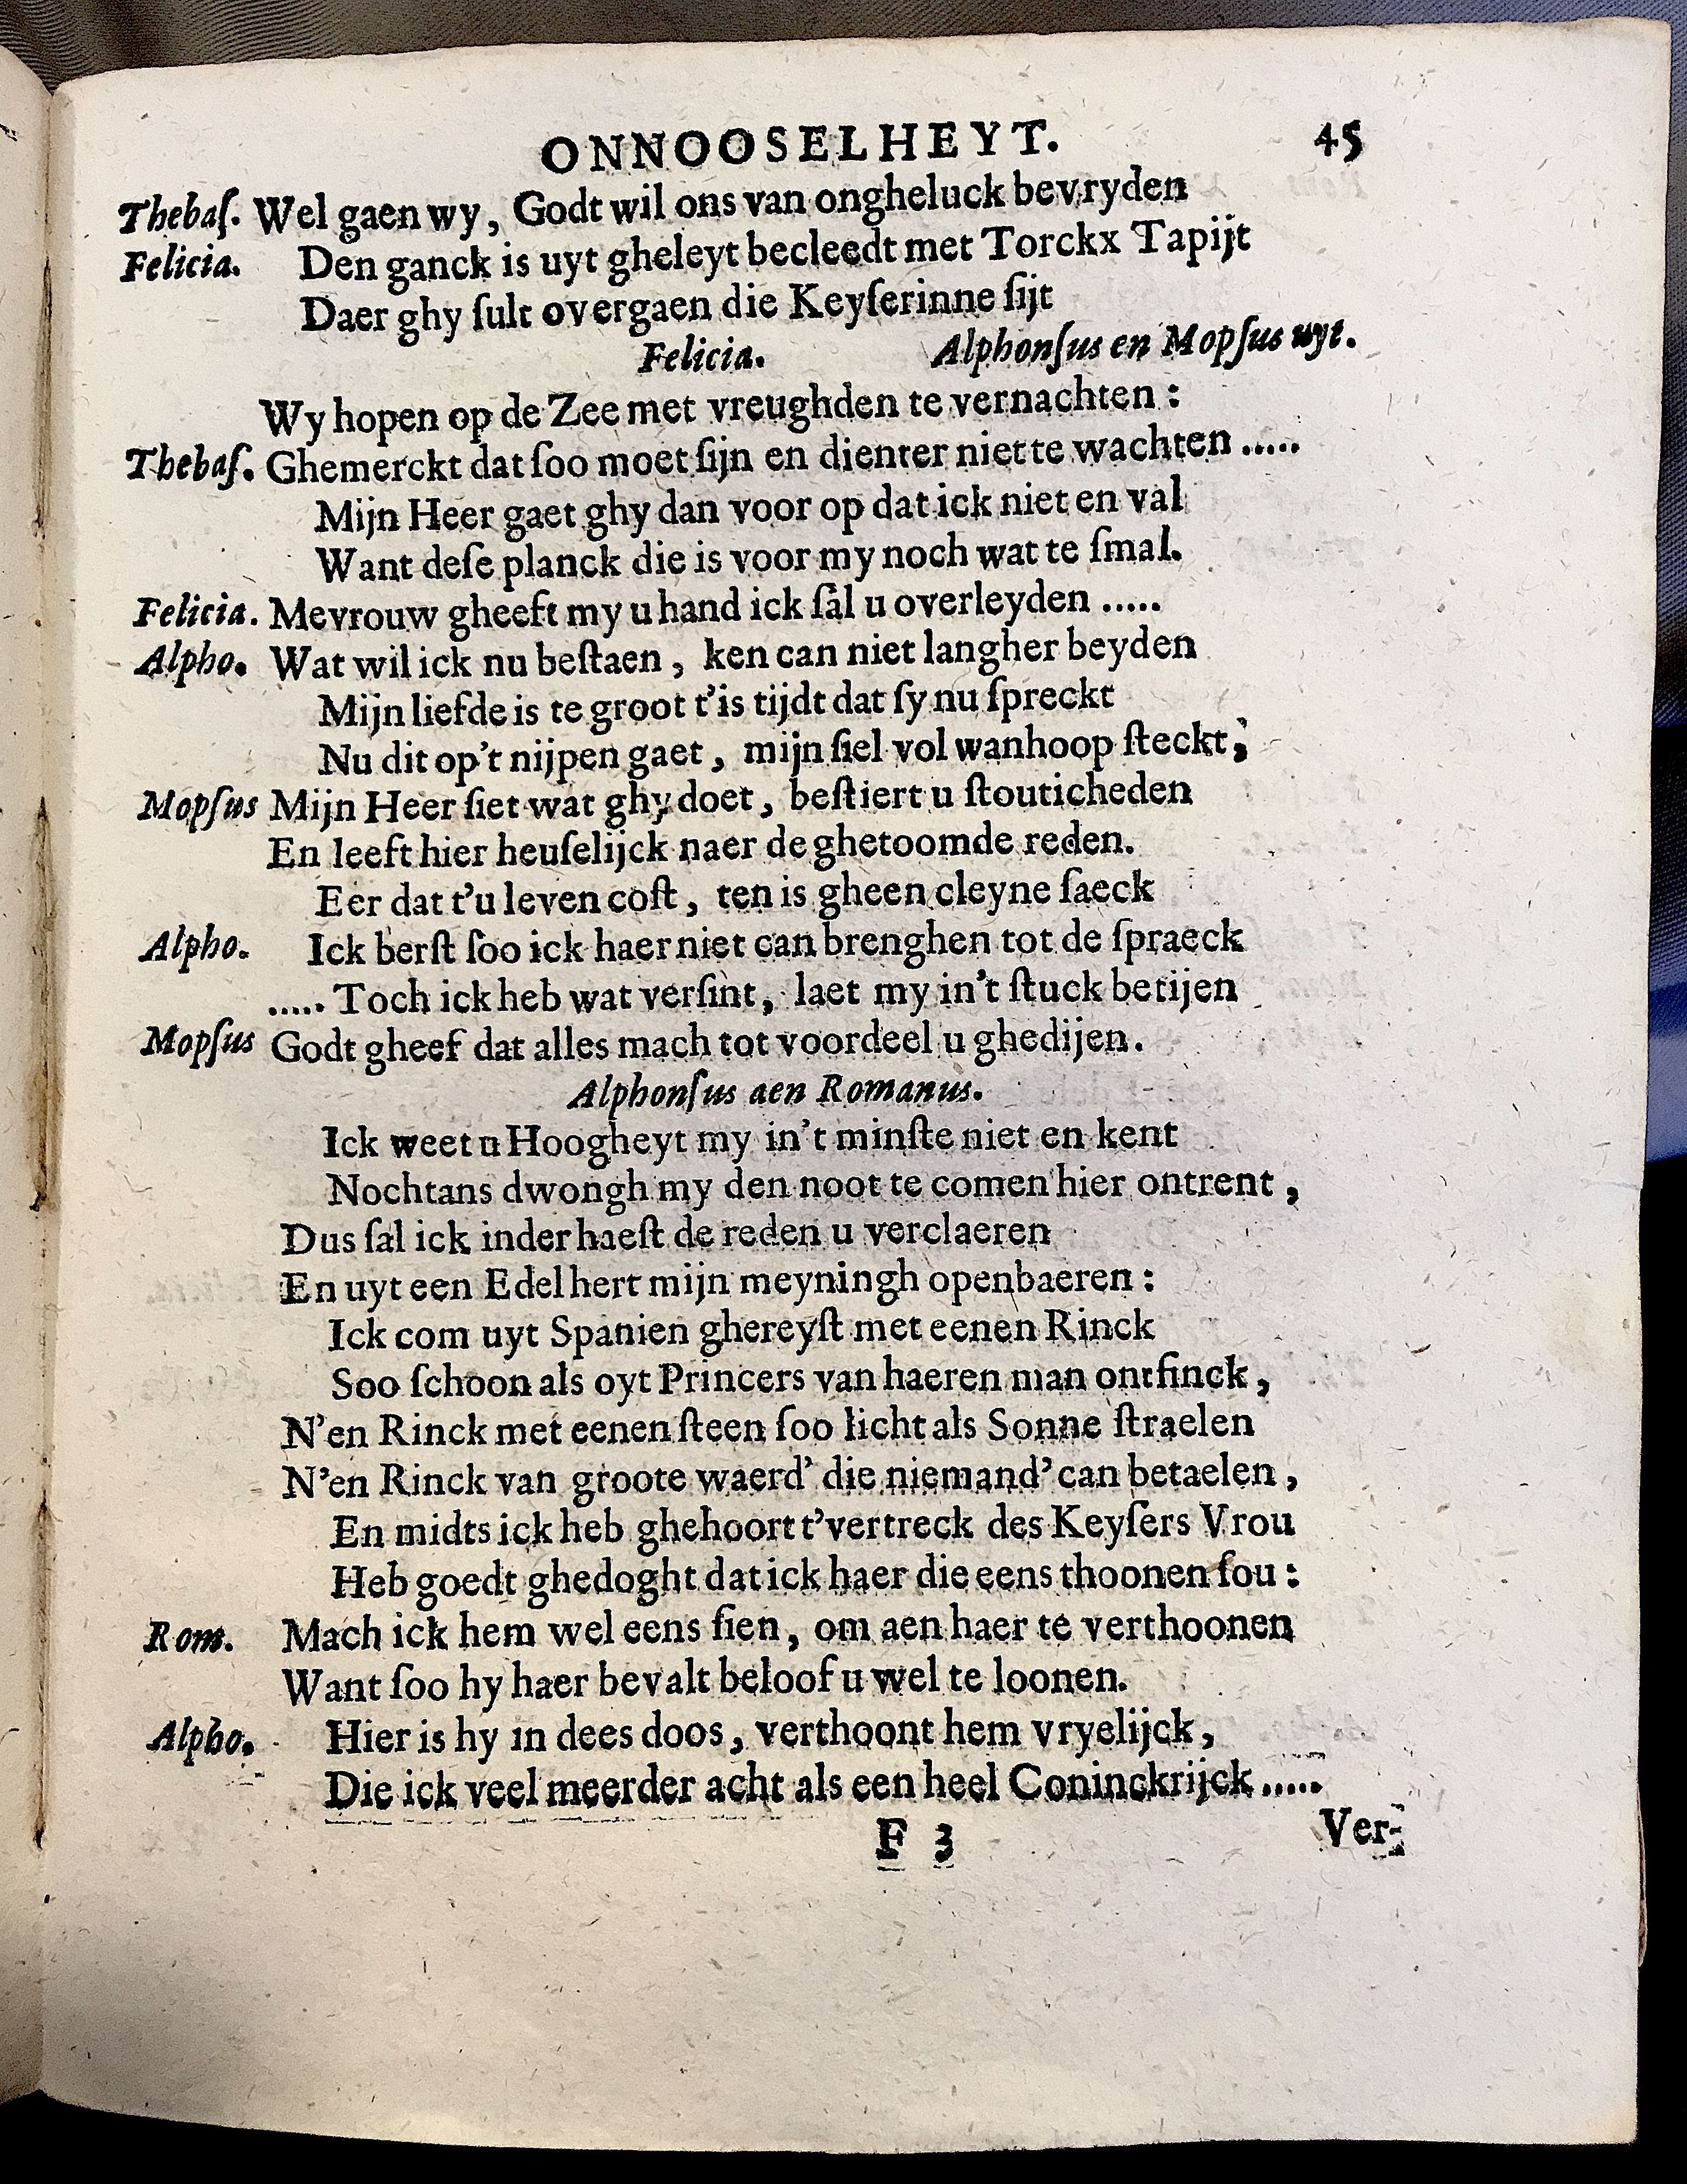 ONNOOSELHEYT. 45
Thebaſ. Wel gaen wy, Godt wil ons van ongheluck bevryden
Felicia. Den ganck is uyt gheleyt becleedt met Torckx Tapijt
Daer ghy ſult overgaen die Keyſerinne ſijt
Felicia. Alphonſus en Mopſus uyt.
Wy hopen op de Zee met vreughden te vernachten :
Thebaſ. Ghemerckt dat ſoo moet ſijn en dienter niet te wachten .....
Mijn Heer gaet ghy dan voor op dat ick niet en val
Want deſe planck die is voor my noch wat te ſmal.
Felicia. Mevrouw gheeft my u hand ick ſal u overleyden .....
Alpho. Wat wil ick nu beſtaen, ken can niet langher beyden
Mijn liefde is te groot t'is tijdt dat ſy nu ſpreckt
Nu dit op't nijpen gaet, mijn ſiel vol wanhoop ſteckt;
Mopſus Mijn Heer ſiet wat ghy doet, beſtiert u ſtouticheden
En leeft hier heuſelijck naer de ghetoomde reden.
Eer dat t'u leven coſt, ten is gheen cleyne ſaeck
Alpho. Ick berſt ſoo ick haer niet can brenghen tot de ſpraeck
..... Toch ick heb wat verſint, laet my in't ſtuck betijen
Mopſus Godt gheef dat alles mach tot voordeel u ghedijen.
Alphonſus aen Romanus.
Ick weet u Hoogheyt my in't minſte niet en kent
Nochtans dwongh my den noot te comen hier ontrent,
Dus ſal ick inder haeſt de reden u verclaeren
En uyt een Edel hert mijn meyningh openbaeren :
Ick com uyt Spanien ghereyſt met eenen Rinck
Soo ſchoon als oyt Princers van haeren man ontfinck,
N'en Rinck met eenen ſteen ſoo licht als Sonne ſtraelen
N'en Rinck van groote waerd' die niemand' can betaelen,
En midts ick heb ghehoort t'vertreck des Keyſers Vrou
Heb goedt ghedoght dat ick haer die eens thoonen ſou :
Rom. Mach ick hem wel eens ſien, om aen haer te verthoonen
Want ſoo hy haer bevalt beloof u wel te loonen.
Alpho. Hier is hy in dees doos, verthoont hem vryelijck,
Die ick veel meerder acht als een heel Coninckrijck .....
F 3 Ver-